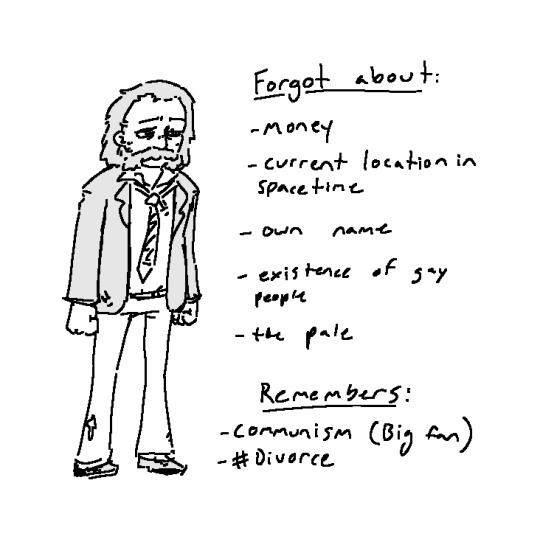 Forgot about:
-Money
-current location in
spacetime
- own name
- existence of gay
people
-the pale
Remembers:
-Communism (Big fan)
-#Divorce